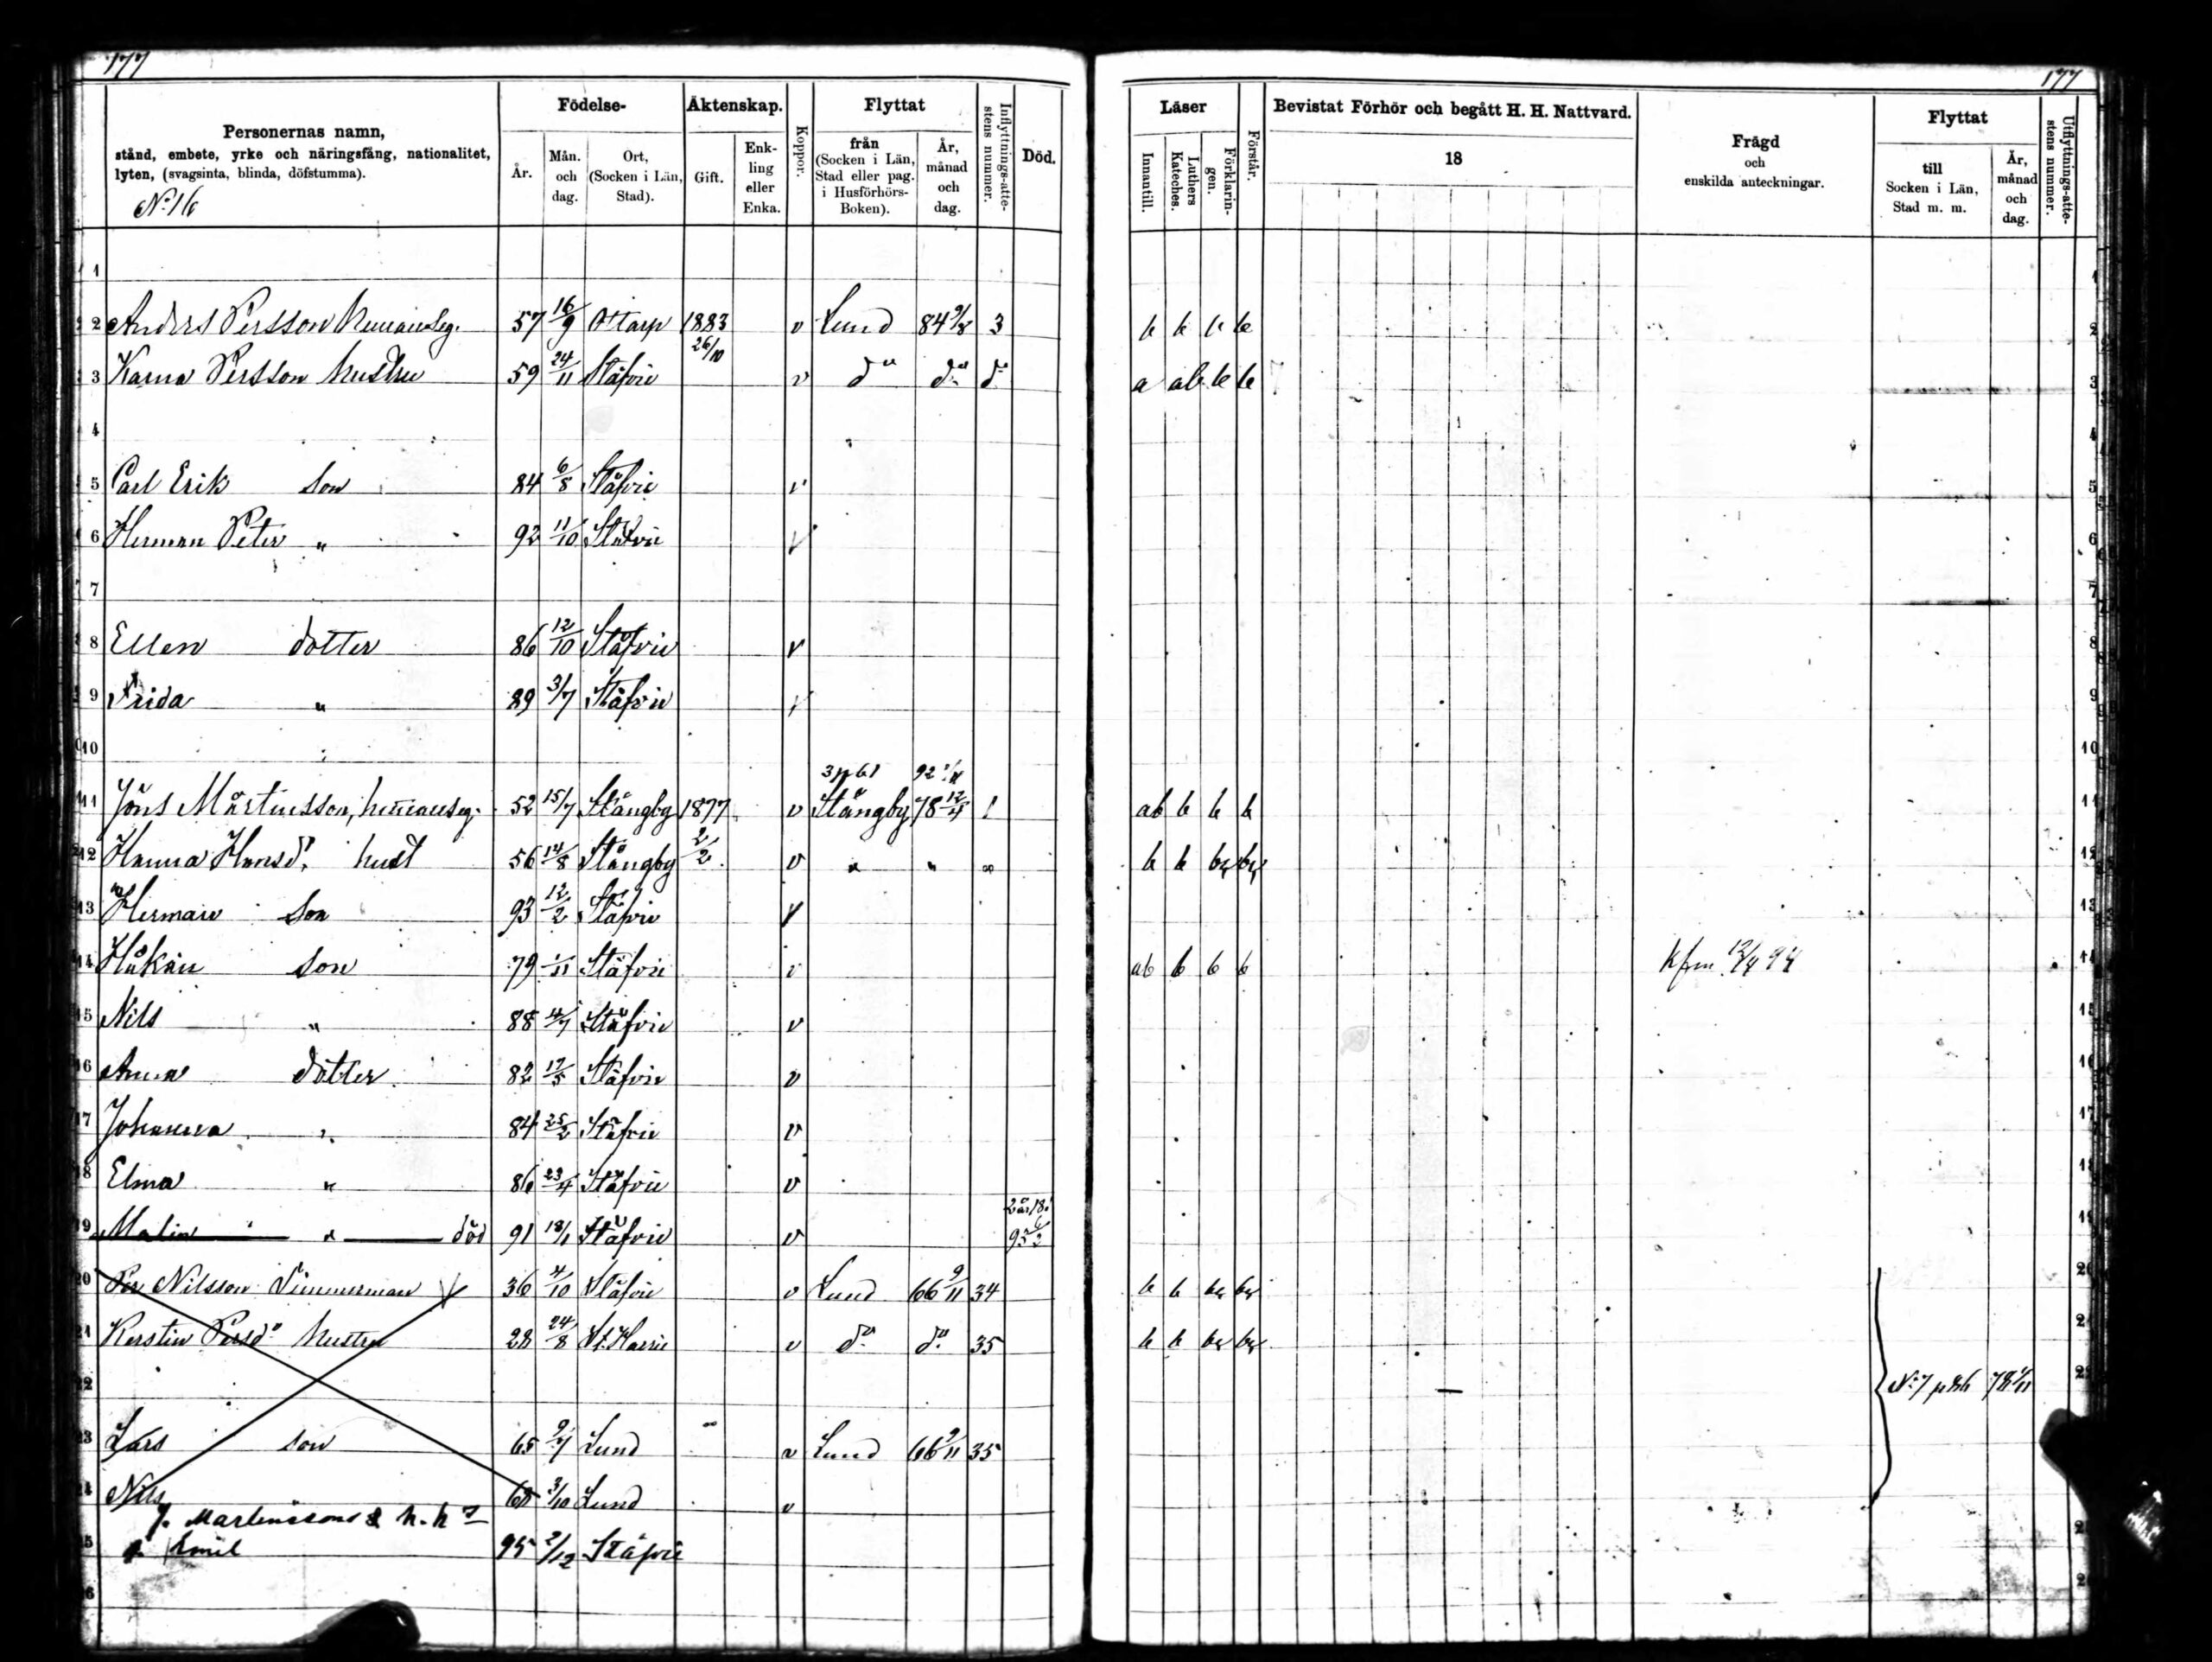 177
177
Personernas namn,
stånd, embete, yrke och näringsfång, nationalitet,
lyten, (svagsinta, blinda, döfstumma).
No 16
Födelse-
År.
Mån. och dag.
Ort, (Socken i Län, Stad).
Äktenskap.
Gift.
Enk- ling eller Enka.
Koppor.
Flyttat
från (Socken i Län, Stad eller pag. i Husförhörs- Boken).
År, månad och dag.
Inflyttnings-atte- stens nummer.
Död.
Läser
Innantill.
Luthers Kateches.
Förklarin- gen.
Förstår.
Bevistat Förhör och begått H. H. Nattvard.
18
Frägd
och
enskilda anteckningar.
Flyttat
till Socken i Län, Stad m. m.
År, månad och dag.
Utflyttnings-atte- stens nummer.
1
2 Anders Persson 57 16/9 1883 v Lund 84 9/8 3 b b b b 2
26/10
3 Karna Persson hustru 59 24/11 Stäfvie v do do do a ab b b 3
4 4
5 Carl Erik son 84 6/8 Stäfvie v 5
6 Herman Peter " 92 11/10 Stäfvie v 6
7 7
8 Ellen dotter 86 12/10 Stäfvie v 8
9 Frida " 89 3/7 Stäfvie v 9
10 10
3 p 61 92
11 Jöns Mårtensson, 52 15/7 Stångby 1877 v Stångby 78 12/4 1 ab b b b 11
12 Hanna Hansd. hust 56 14/8 Stångby 2/2 v " " " b b 12
13 Herman son 93 12/2 Stäfvie v 13
14 Håkan son 79 Stäfvie v ab b b b kfm 12/4 94 14
15 Nils " 88 4/7 Stäfvie v 15
16 Anna dotter 82 Stäfvie v 16
17 Johanna " 84 25/2 Stäfvie v 17
18 Elma " 86 23/4 Stäfvie v 18
19 Malin " död 91 18/1 Stäfvie v 19
20 Per Nilsson Timmerman 36 4/10 Stäfvie v Lund 66 9/11 34 b b 20
21 Kerstin Persdr hustru 28 24/8 St. Harrie v do do 35 b b
22 No 7 p 86 78
23 Lars son 65 9/7 Lund v Lund 66 9/11 35
24 Nils 68 3/10 Lund v
J. Martinssons & h. h
s. Emil 95 2/12 Stäfvie